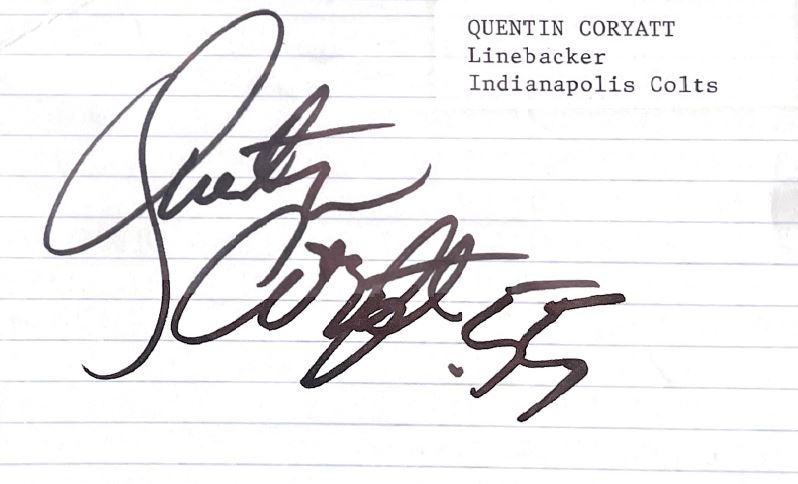 QUENTIN CORYATT
Linebacker
Indianapolis Colts
Quentin
Coryatt
55